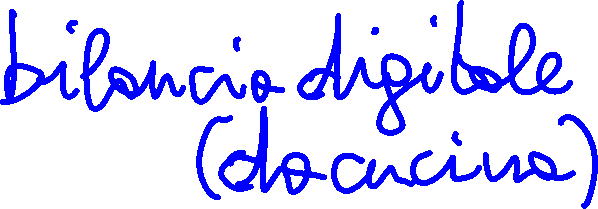 bilancia digitale
(da cucina)